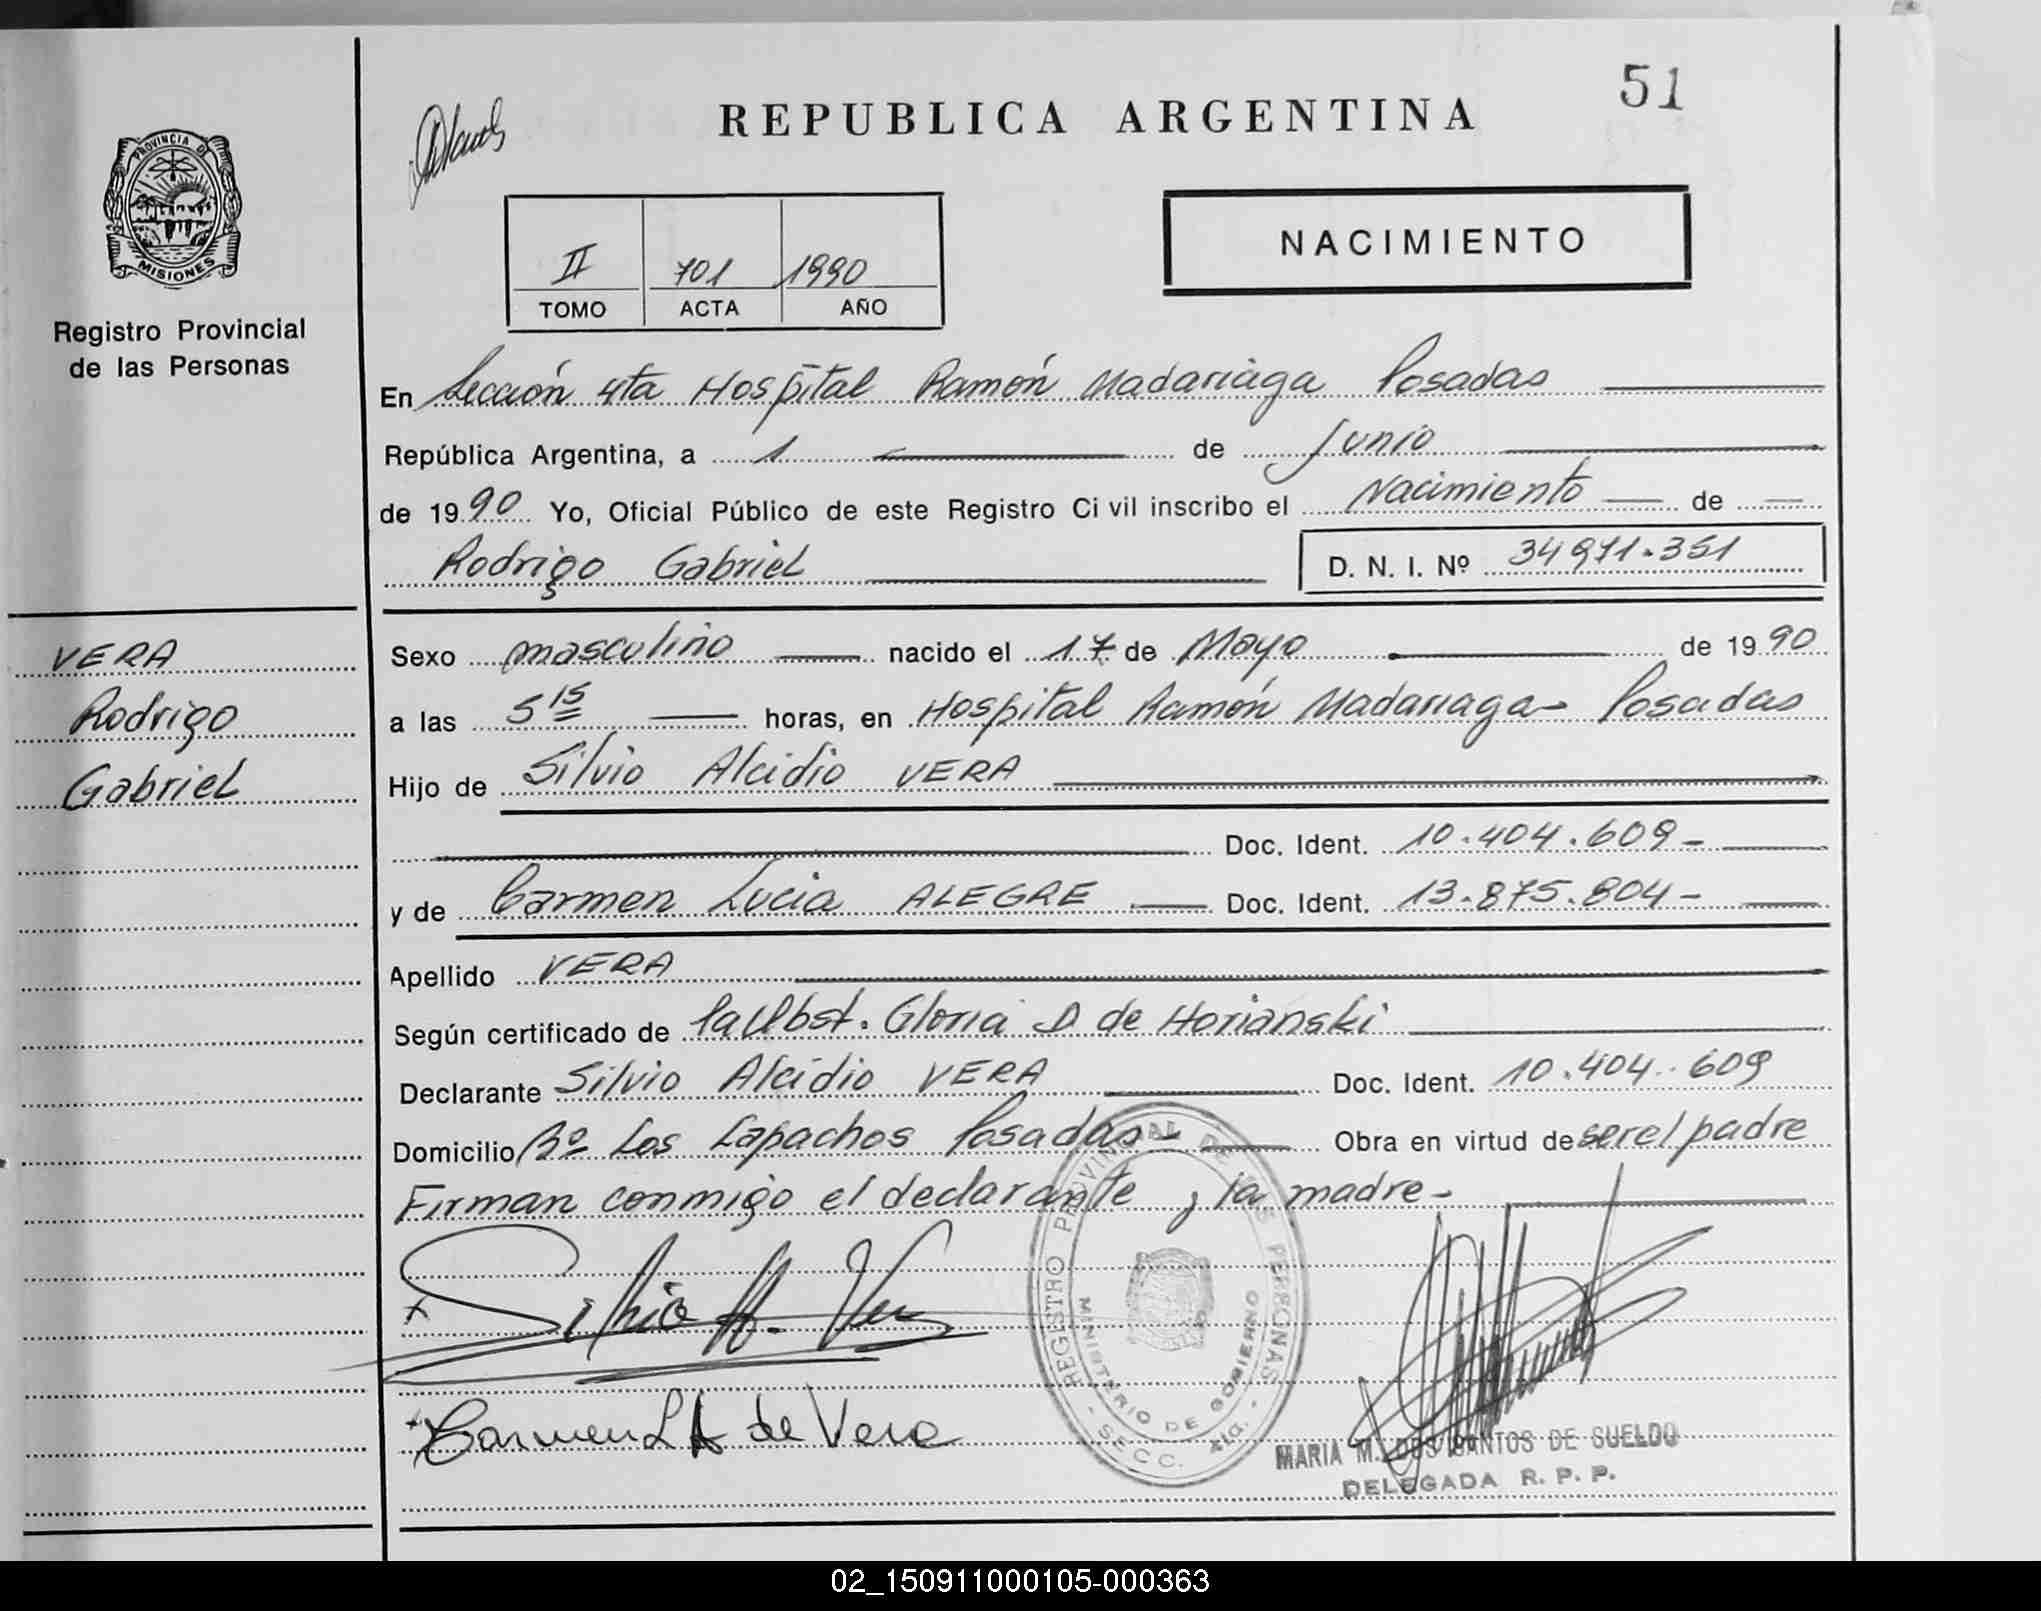 51
REPUBLICA ARGENTINA
PROVINCIA DE
MISIONES
Registro Provincial
de las Personas
NACIMIENTO
II 701 1990
TOMO ACTA AÑO
En Sección 4ta Hospital Ramón Madariaga Posadas
República Argentina, a 1 de Junio
de 1990 Yo, Oficial Público de este Registro Ci vil inscribo el Nacimiento de
Rodrigo Gabriel D. N. I. Nº 34971.351
VERA
Rodrigo
Gabriel
Sexo masculino nacido el 17 de Mayo de 1990
a las 5 15 horas, en Hospital Ramón Madariaga - Posadas
Hijo de Silvio Alcidio VERA
Doc. Ident. 10.404.609-
y de Carmen Lucia ALEGRE Doc. Ident. 13.875.804-
Apellido VERA
Según certificado de la Obst. Gloria D de Horianski
Declarante Silvio Alcidio VERA Doc. Ident. 10.404.609
Domicilio Bº Los Lapachos Posadas- Obra en virtud de ser el padre
Firman conmigo el declarante y la madre-
Silvio A. Vera
Carmen L A de Vera
REGISTRO PROVINCIAL DE LAS PERSONAS
MINISTERIO DE GOBIERNO
- SECC. 4ta. -
MARIA M. DOS SANTOS DE SUELDO
DELEGADA R. P. P.
02_150911000105-000363